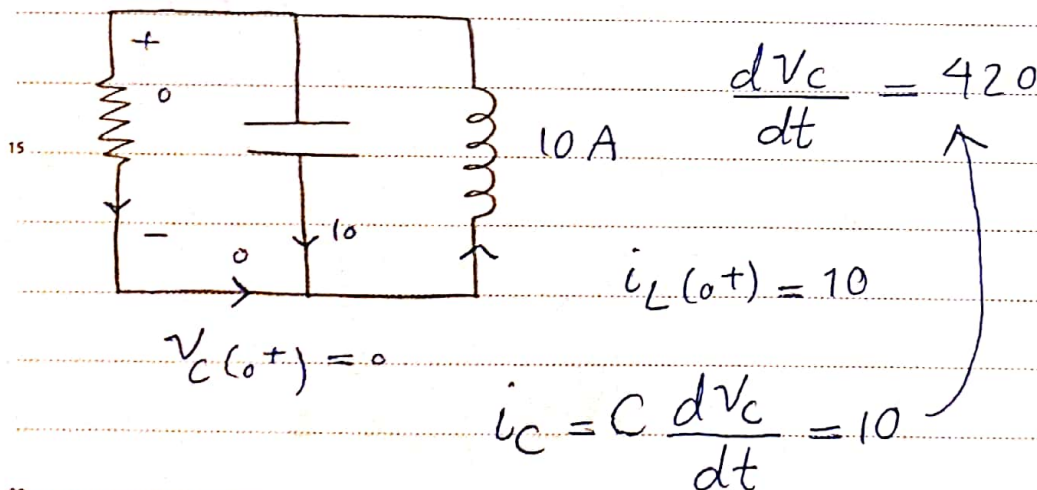 +
0
15
10 A
dVc/dt = 420
-
0
10
iL(0+) = 10
Vc(0+) = 0
ic = C dVc/dt = 10